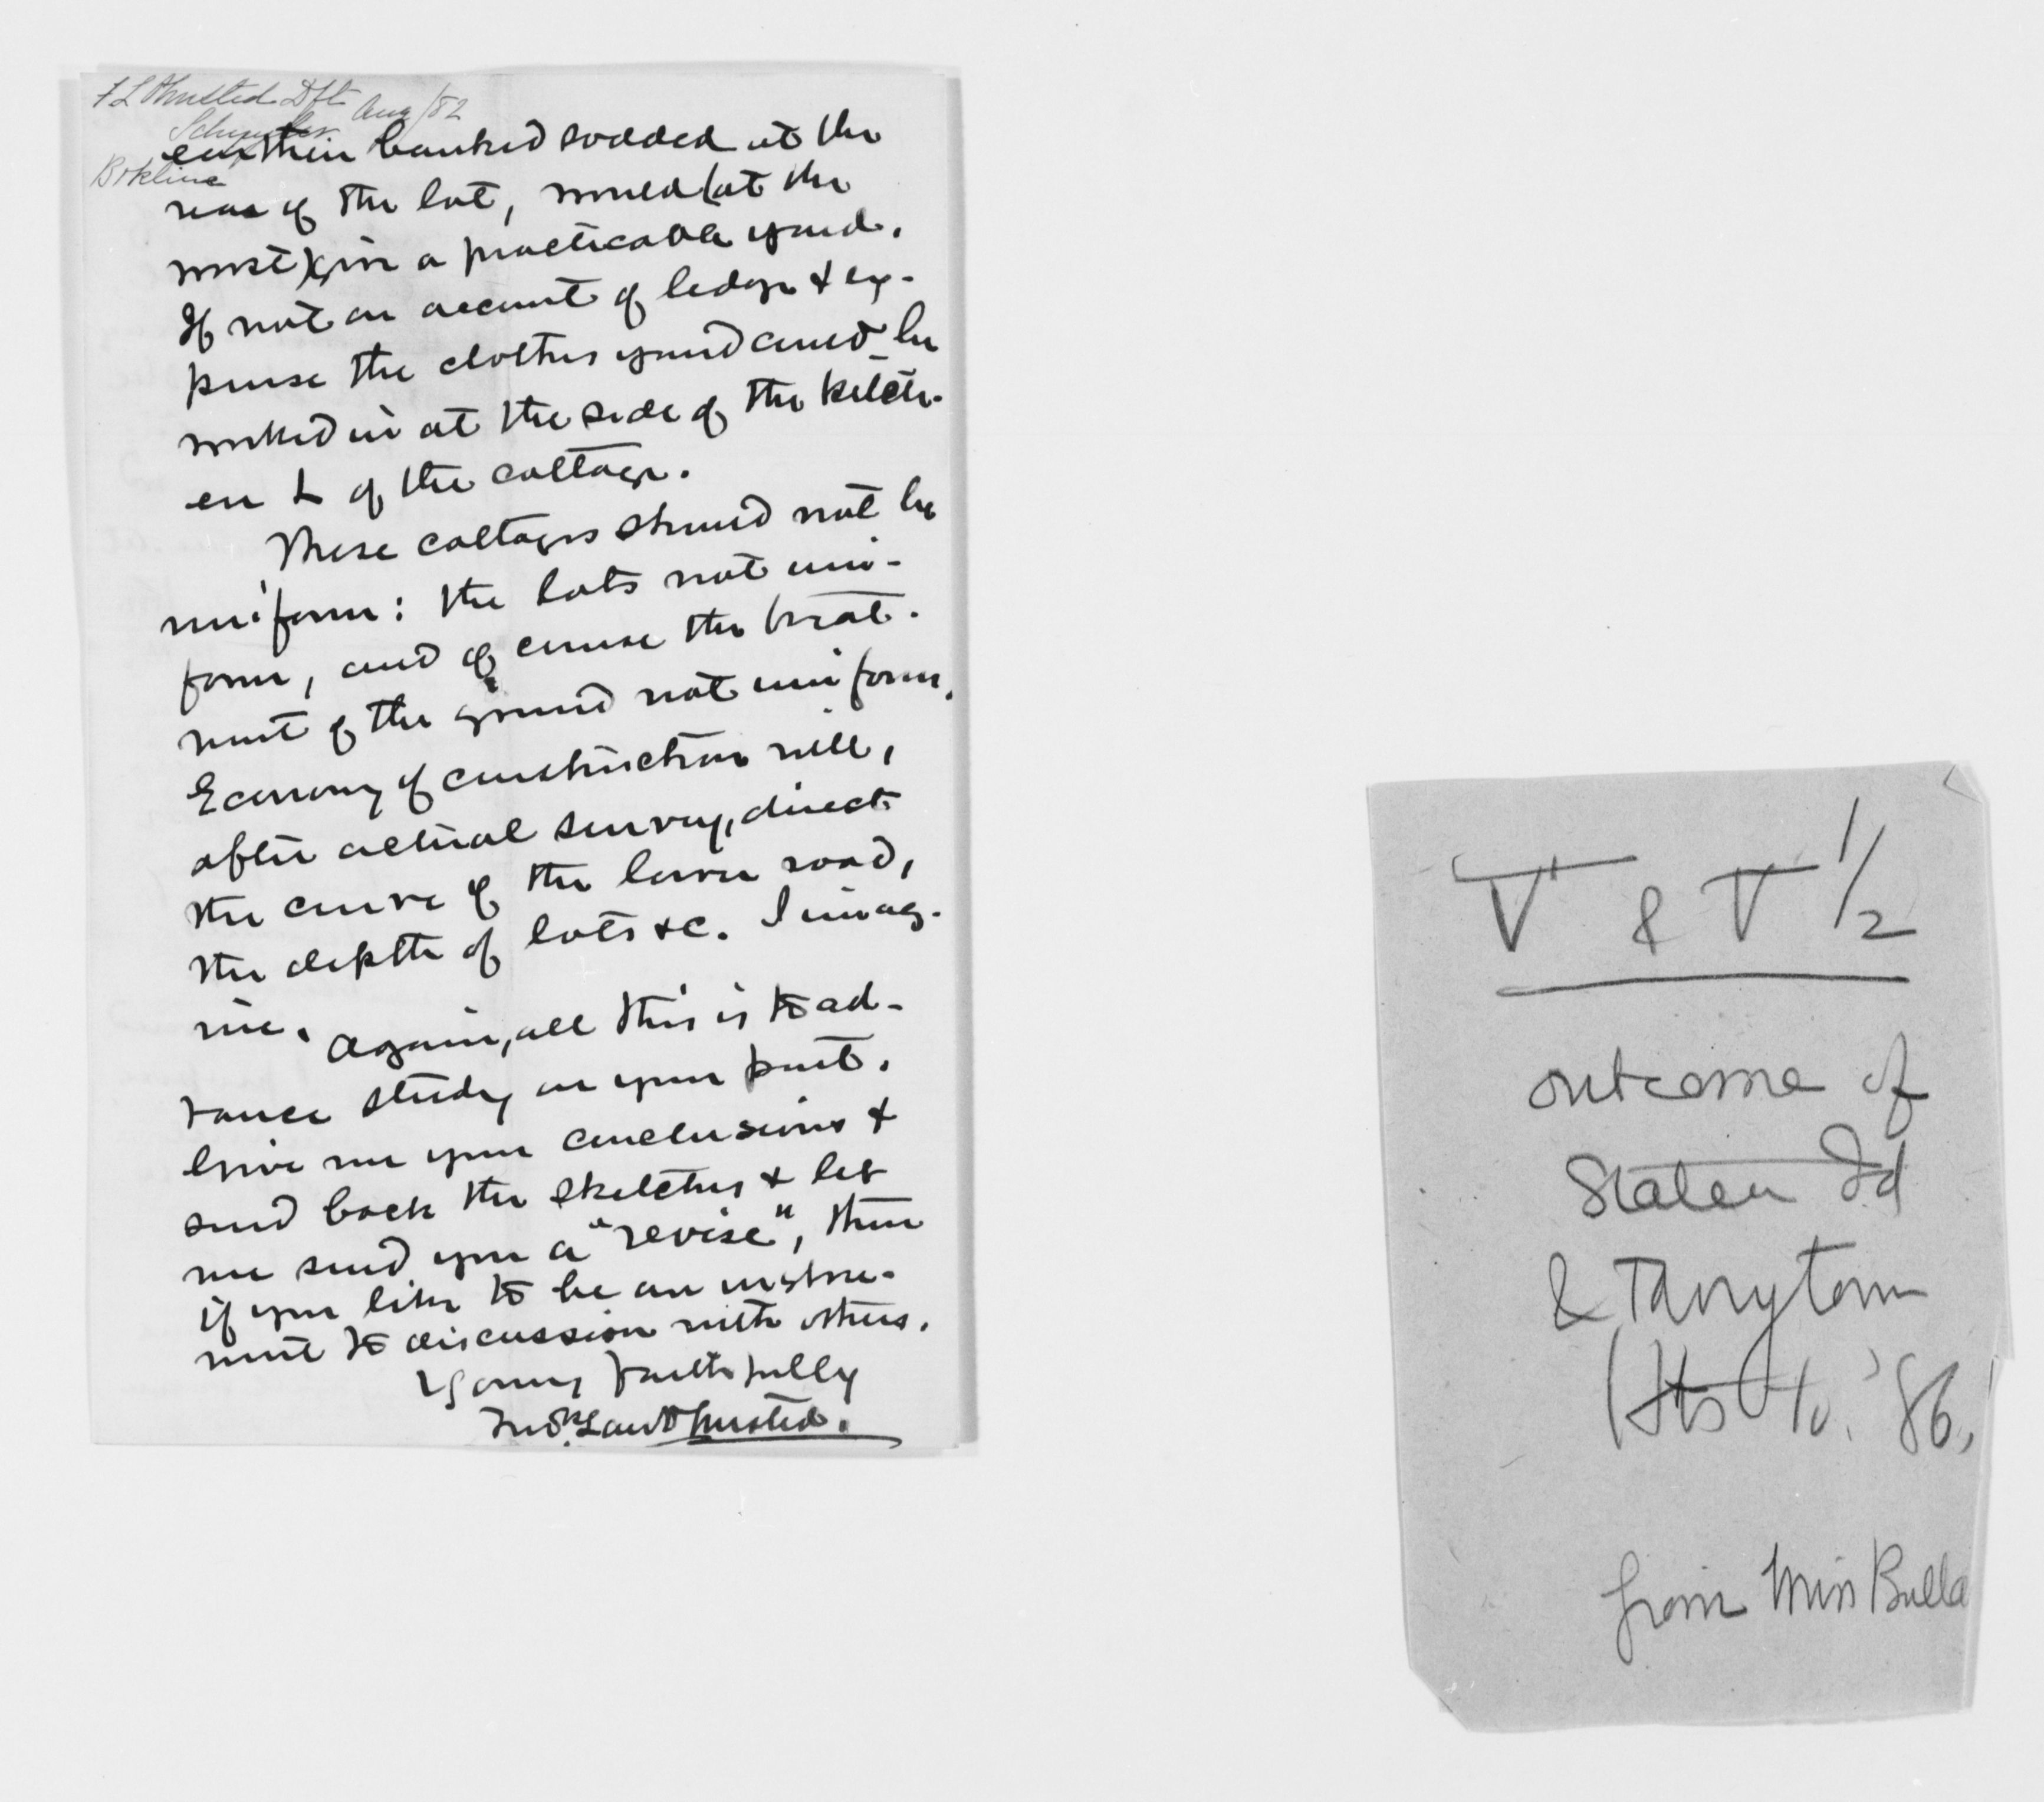 F L Olmsted Dft Aug/82
Schuyler
Brkline
earthen banked sodded at the
rear of the lot, would (at the
most) give a practicable yard.
If not on account of ledge & ex-
pense the clothes yard could be
worked in at the side of the kitch-
en L of the cottage.
These cottages should not be
uniform: the lots not uni-
form, and of course the treat-
ment of the ground not uniform.
Economy of construction will,
after actual survey, direct
the curve of the lower road,
the depth of lots &c. I imag-
ine.
Again, all this is to ad-
vance study on your part.
Give me your conclusions &
send back the sketches & let
me send you a "revise", then
if you like to be an instru-
ment to discussion with others.
Yours faithfully
Fredk Law Olmsted.
V & V 1/2
outcome of
Staten Id
& Tarrytown
Hts '86,
from Miss Bulla